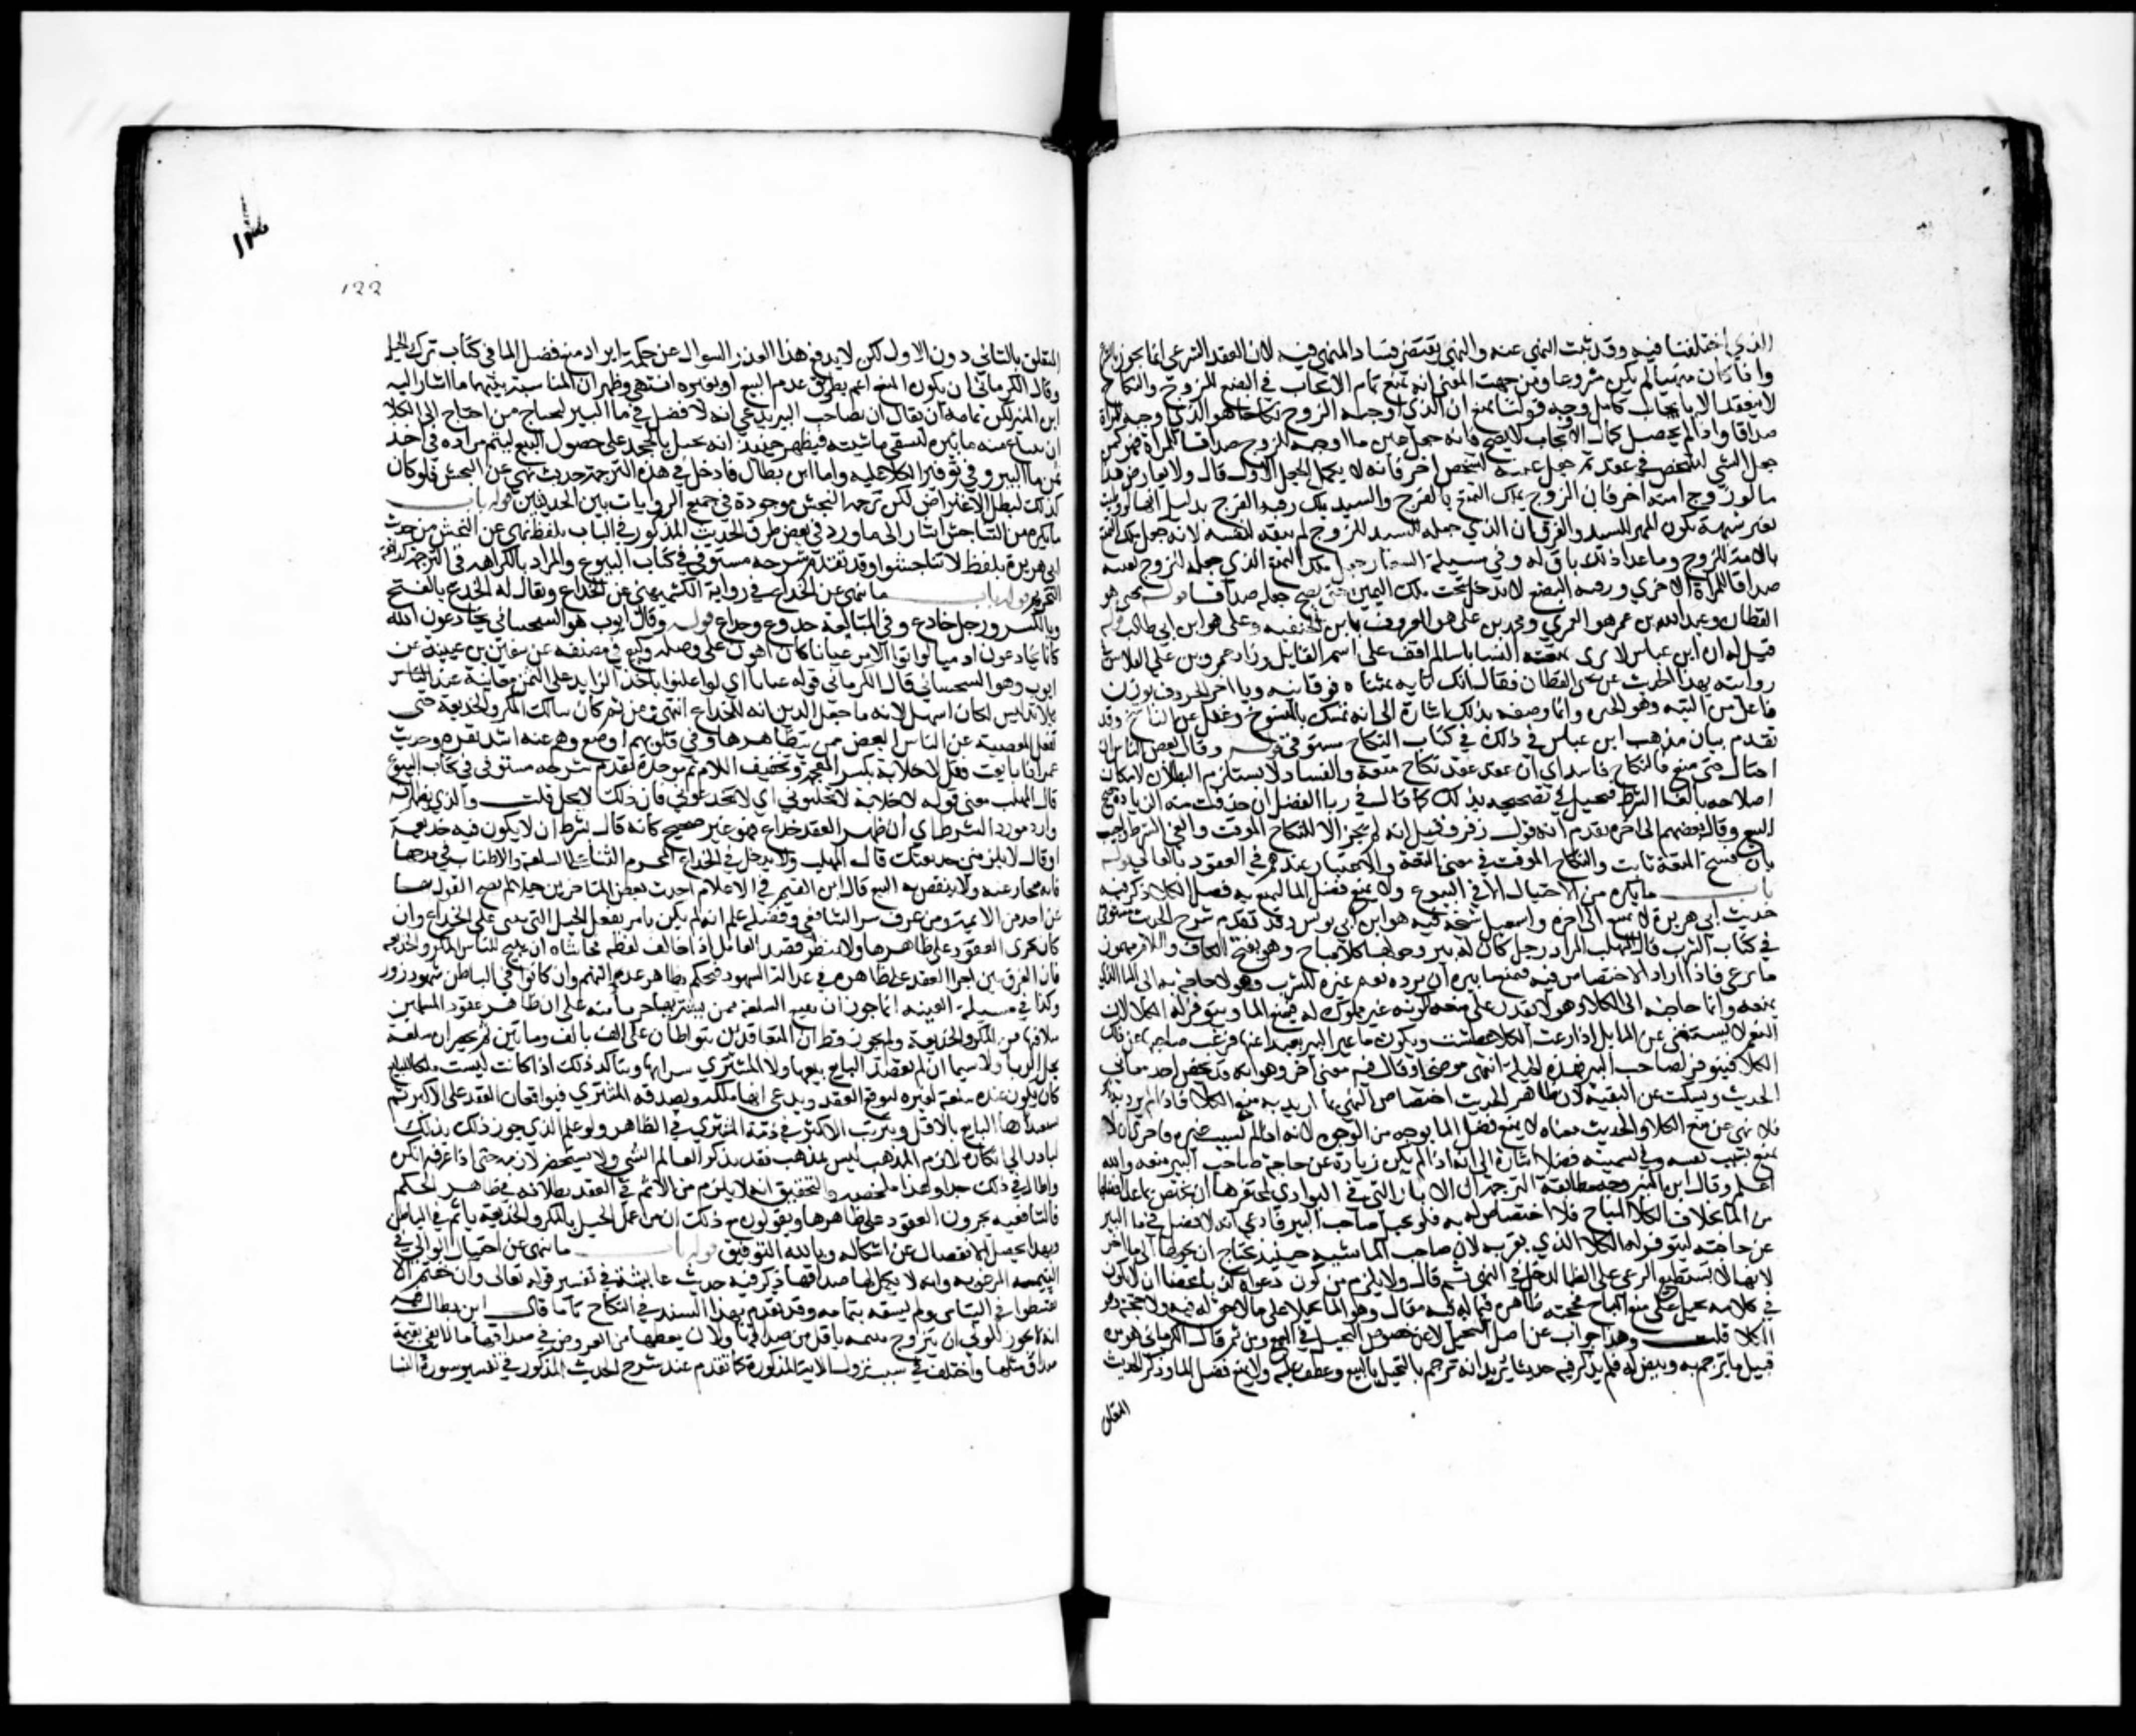 الذي اختلفنا فيه وقد ثبت النهي عنه والنهي يقتضي فساد المنهي فيه لان العقد الشرعي انما يجوز بالشرع
واذا كان منهيا لم يكن مشروعا ومن جهة المعنى انه يمنع تمام الايجاب في البضع للزوج والنكاح
لا ينعقد الا بايجاب كامل ووجه قولنا يمنع ان الذي اوجبه للزوج نكاحا هو الذي اوجبه للمراة
صداقا واذا لم يحصل كمال الايجاب لا يصح فانه جعل عين ما اوجبه للزوج صداقا للمراة فهو كمن
جعل الشي لشخص في عقد ثم جعل عينه لشخص اخر فانه لا يكمل الجعل الاول قال ولا يعارض هذا
ما لو زوج امته اخر فان الزوج يملك التمتع بالفرج والسيد يملك رقبة الفرج بدليل انها لو وطئت
بعد بشبهة يكون المهر للسيد والفرق ان الذي جعله السيد للزوج لم يبقه لنفسه لانه جعل ملك التمتع
بالامة للزوج وما عدا ذلك باق له وفي مسيلة الشغار جعل ملك التمتع الذي جعله للزوج بعينه
صداقا للمراة الاخرى ورقبة البضع لا تدخل تحت ملك اليمين حتى يصح جعله صداقا قوله يحيى هو
القطان وعبد الله بن عمر هو العمري ومحمد بن علي هو المعروف بابن الحنفية وعلي هو ابن ابي طالب قوله
قيل له ان ابن عباس لا يرى بمتعة النسا باسا لم اقف على اسم القايل وزاد عمرو بن علي الفلاس في
روايته لهذا الحديث عن يحيى القطان فقال انك تايه بمثناة فوقانية ويا اخر الحروف بوزن
فاعل من التيه وهو الحيرة وانما وصفه بذلك اشارة الى انه تمسك بالمنسوخ وغفل عن الناسخ وقد
تقدم بيان مذهب ابن عباس في ذلك في كتاب النكاح مستوفى قوله وقال بعض الناس ان
احتال حتى تمتع فالنكاح فاسد اي ان عقد عقد نكاح متعة والفساد لا يستلزم البطلان لامكان
اصلاحه بالغا الشرط فيحيل في تصحيحه بذلك كما قال في ربا الفضل ان حذفت منه الزيادة صح
البيع وقال بعضهم الى اخره تقدم انه قول زفر وقيل انه لم يجز الا للنكاح الموقت والغى الشرط واجيب
بان نسخ المتعة ثابت والنكاح الموقت في معنى المتعة والاعتبار عندهم في العقود بالمعاني قوله
باب ما يكره من الاحتيال في البيوع ولا يمنع فضل الما ليمنع به فضل الكلا ذكر فيه
حديث ابي هريرة لا يمنع الى اخره واسمعيل شيخه فيه هو ابن ابي اويس وقد تقدم شرح الحديث مستوفى
في كتاب الشرب قال المهلب المراد رجل كان له بير وحولها كلا مباح وهو بفتح الكاف واللام مهموز
ما يرعى فاذا اراد الاختصاص فيه فيمنع ما بيره ان يرده نعم غيره للشرب وهو لا حاجة به الى الما الذي
يمنعه وانما حاجته الى الكلا وهو لا يقدر على منعه لكونه غير مملوك له فيمنع الما ويتوفر له الكلا لان
النعم لا يستغني عن الما بل اذا رعت الكلا عطشت ويكون ما غير البير بعيدا عنها فيرغب صاحبها عن ذلك
الكلا فيتوفر لصاحب البير بهذه الحيلة انتهى موضحا وقال فيه معنى اخر وهو انه قد يخص احد معاني
الحديث ويسكت عن البقية لان ظاهر الحديث اختصاص النهي بما اريد به منع الكلا فاذا لم يرد به ذلك
فلا نهي عن منع الكلا والحديث معناه لا يمنع فضل الما بوجه من الوجوه لانه اذا لم يمنع بسبب غيره فاحرى ان لا
يمنع بسبب نفسه وفي تسميته فضلا اشارة الى انه اذا لم يكن زيادة عن حاجة صاحب البير منعه والله
اعلم وقال ابن المنير وجه مطابقة الترجمة ان الابار التي في البوادي لمحتفرها ان يختص بما عدا فضلها
من الما بخلاف الكلا المباح فلا اختصاص له به فلو تحيل صاحب البير فادعى انه لا فضل في ما البير
عن حاجته ليتوفر له الكلا الذي بقربه لان صاحب الماشية حينئذ يحتاج ان يحولها الى ما اخر
لانها لا تستطيع الرعي على الظما لدخل في النهي ثم قال ولا يلزم من كون دعواه كذبا محضا ان لا يكون
في كلامه تحيل على منع المباح فحجته ظاهرة فيما له فيه مقال وهو الما تحيلا على ما لا حق له فيه ولا حجة وهو
الكلا قلت وهذا جواب عن اصل التحيل لا عن خصوص التحيل في البيع ومن ثم قال الكرماني هو من
قبيل ما ترجم به وبيض له فلم يذكر فيه حديثا يريد انه ترجم بالتحيل بالبيع وعطف عليه ولا يمنع فضل الما وذكر الحديث
المتعلق
١٢٣
122
المتعلق بالثاني دون الاول لكن لا يدفع هذا القدر السوال عن حكمة ايراد منع فضل الما في كتاب ترك الحيل
وقال الكرماني ان يكون المنع اعم بطريق عدم البيع او بغيره انتهى وظهر ان المناسبة بينهما ما اشار اليه
ابن المنير لكن تمامه ان يقال ان صاحب البير يدعي انه لا فضل في ما البير ليحتاج من احتاج الى الكلا
ان يبتاع منه ما بيره ليسقي ماشيته فيظهر حينئذ انه تحيل بالجحد على حصول البيع ليتم مراده في اخذ
ثمن ما البير وفي توفير الكلا عليه واما ابن بطال فادخل في هذه الترجمة حديث نهى عن النجش فلو كان
كذلك لبطل الاعتراض لكن ترجمة النجش موجودة في جميع الروايات بين الحديثين قوله باب
ما يكره من التناجش اشار الى ما ورد في بعض طرق الحديث المذكور في الباب بلفظ نهى عن النجش من حديث
ابي هريرة بلفظ لا تناجشوا وقد تقدم شرحه مستوفى في كتاب البيوع والمراد بالكراهة في الترجمة كراهة
التحريم قوله باب ما ينهى عن الخداع في رواية الكشميهني عن الخداع ويقال له الخدع بالفتح
وبالكسر ورجل خادع وفي المبالغة خدوع وخداع قوله وقال ايوب هو السختياني يخادعون الله
كانما يخادعون ادميا لو اتوا الامر عيانا كان اهون علي وصله وكيع في مصنفه عن سفين بن عيينة عن
ايوب وهو السختياني قال الكرماني قوله عيانا اي لو اعلنوا باخذ الزايد على الثمن معاينة عند الناس
بلا تدليس لكان اسهل لانه ما جعل الدين الة للخداع انتهى ومن ثم كان سالك المكر والخديعة حتى
يفعل المعصية عند الناس ابغض ممن يتظاهر بها وفي قلوبهم اوضع وهم عنه اشد نفرة وحديث
عمر اذا بايعت فقل لا خلابة بكسر المعجمة وتخفيف اللام ثم موحدة تقدم شرحه مستوفى في كتاب البيوع
قال المهلب معنى قوله لا خلابة لا تخلبوني اي لا تخدعوني فان ذلك لا يحل قلت والذي يظهر انه
وارد مورد الشرط اي ان ظهر العقد خداع فهو غير صحيح كانه قال بشرط ان لا يكون فيه خديعة
او قال لا يلزمني خديعتك قال المهلب ولا يدخل في الخداع المحرم الثنا على السلعة والاطناب في مدحها
فانه متجاوز عنه ولا ينتقض به البيع قال ابن القيم في الاعلام احدث بعض المتاخرين حيلا لم يصح القول بها
عن احد من الايمة ومن عرف سير الشافعي وفضله علم انه لم يكن يامر بفعل الحيل التي تبنى على الخداع وان
كان يجري العقود على ظاهرها ولا ينظر قصد العاقد اذا خالف لفظه فحاشاه ان يبيح للناس المكر والخديعة
فان الفرق بين اجرا العقد على ظاهره في عدالة الشهود فيحكم بظاهر عدم التهم وان كانوا في الباطن شهود زور
وكذا في مسيلة العينة انما جوز ان يبيع السلعة ممن يشتريها جريا منه على ان ظاهر عقود المسلمين
سلامتها من المكر والخديعة ولم يجوز قط ان المتعاقدين يتواطآن على الف بالف وماتين ثم يحضران سلعة
تحل الربا ولا سيما ان لم يقصد البايع بيعها ولا المشتري شراها ويتاكد ذلك اذا كانت ليست ملكا للبايع
كان يكون عنده سلعة لغيره فيوقع العقد ويدعي انها ملكه ويصدقه المشتري فيوقعان العقد على الاكثر ثم
يستعيدها البايع بالاقل ويترتب الاكثر في ذمة المشتري في الظاهر ولو علم الذي جوز ذلك بذلك
لبادر الى انكاره لان لازم المذهب ليس بمذهب فقد يذكر العالم الشي ولا يستحضر لازمه حتى اذا عرفه انكره
واطال في ذلك جدا وهذا ملخصه والتحقيق انه لا يلزم من الاثم في العقد بطلانه في ظاهر الحكم
فالشافعية يجرون العقود على ظاهرها ويقولون مع ذلك ان من عمل الحيل بالمكر والخديعة ياثم في الباطن
وبهذا يحصل الانفصال عن اشكاله وبالله التوفيق قوله باب ما ينهى عن احتيال الوالي في
اليتيمة المرغوبة وان لا يكمل لها صداقها ذكر فيه حديث عايشة في تفسير قوله تعالى وان خفتم الا
تقسطوا في اليتامى ولم يسقه بتمامه وقد تقدم بهذا السند في النكاح تاما قال ابن بطال فيه
انه لا يجوز للولي ان يتزوج يتيمة باقل من صداقها ولا ان يعطيها من العروض في صداقها ما لا يفي بقيمة
صداق مثلها واختلف في سبب نزول الاية المذكورة كما تقدم عند شرح الحديث المذكور في تفسير سورة النسا